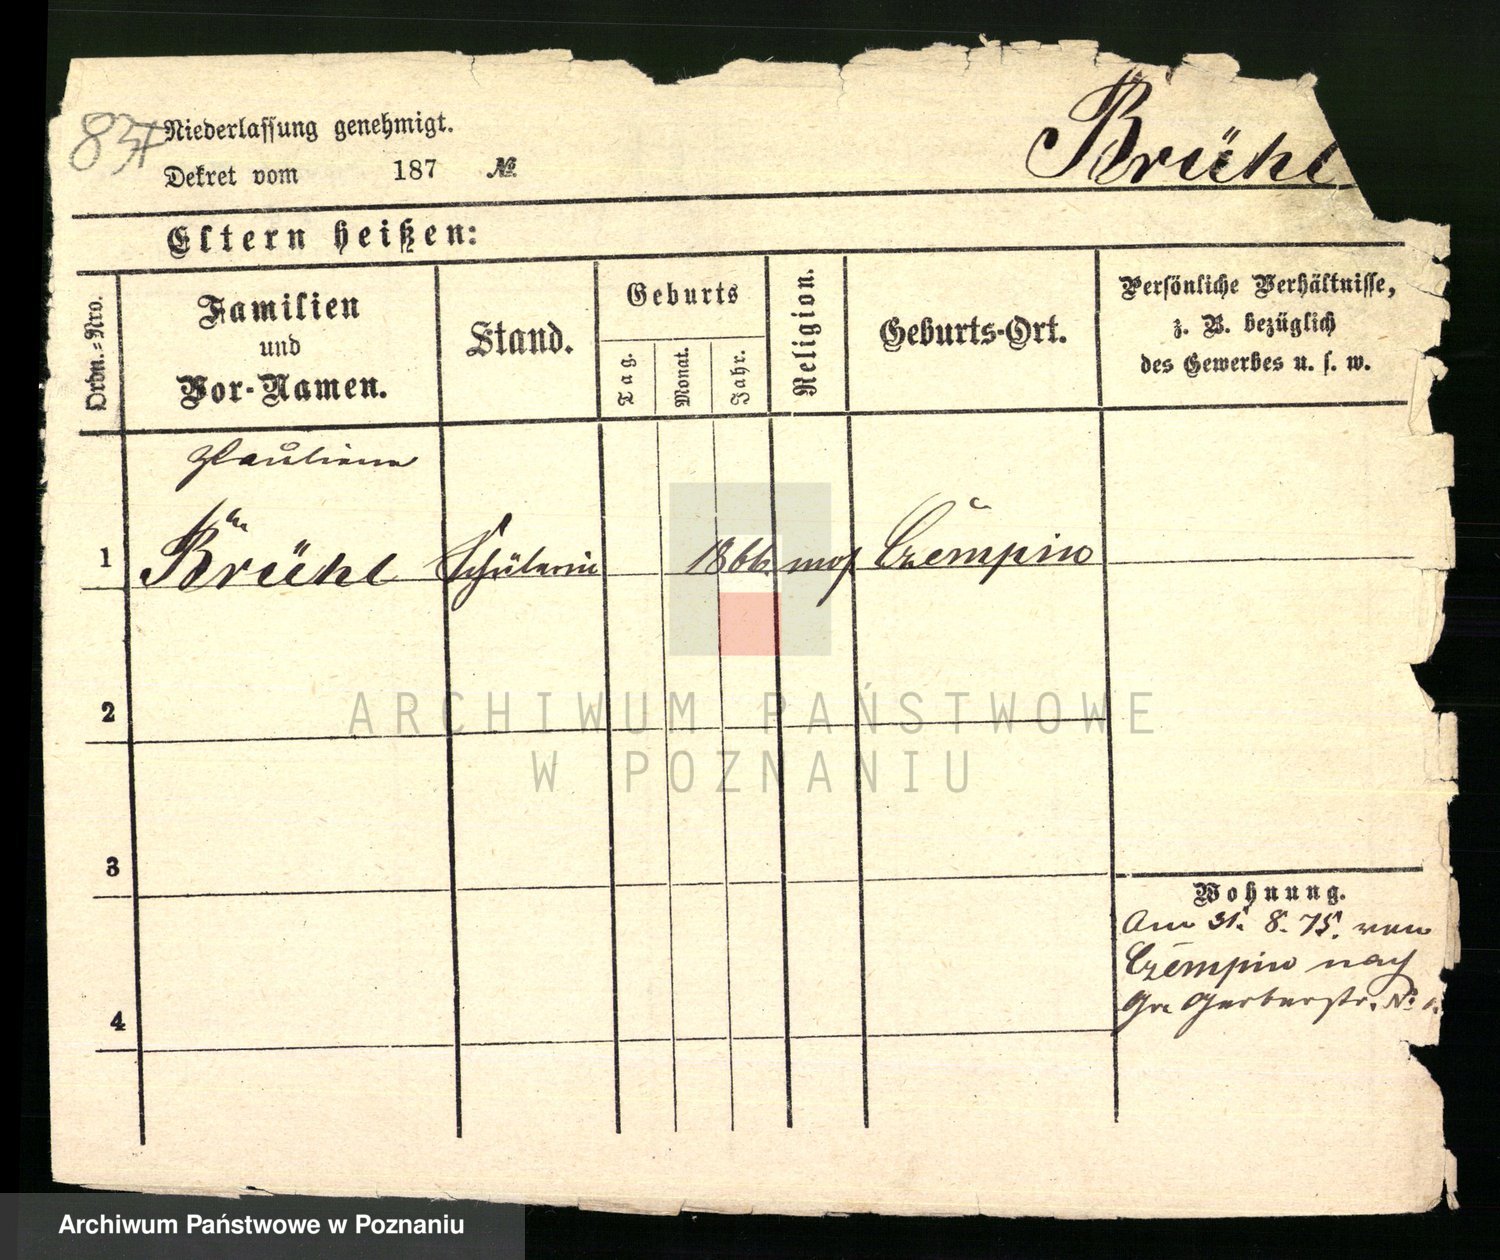 83
Niederlassung genehmigt.
Dekret vom 187 №
Brühl
Eltern heißen:
Ordn.-Nro.
Familien
und
Vor-Namen.
Stand.
Geburts
Tag.
Monat.
Jahr.
Religion.
Geburts-Ort.
Persönliche Verhältnisse,
z. B. bezüglich
des Gewerbes u. s. w.
Pauline
1 Brühl Schülerin 1866. mos Czempin
2
3
4
Wohnung.
Am 31. 8. 75. von
Czempin nach
Gr. Gerberstr. No
ARCHIWUM PAŃSTWOWE
W POZNANIU
Archiwum Państwowe w Poznaniu